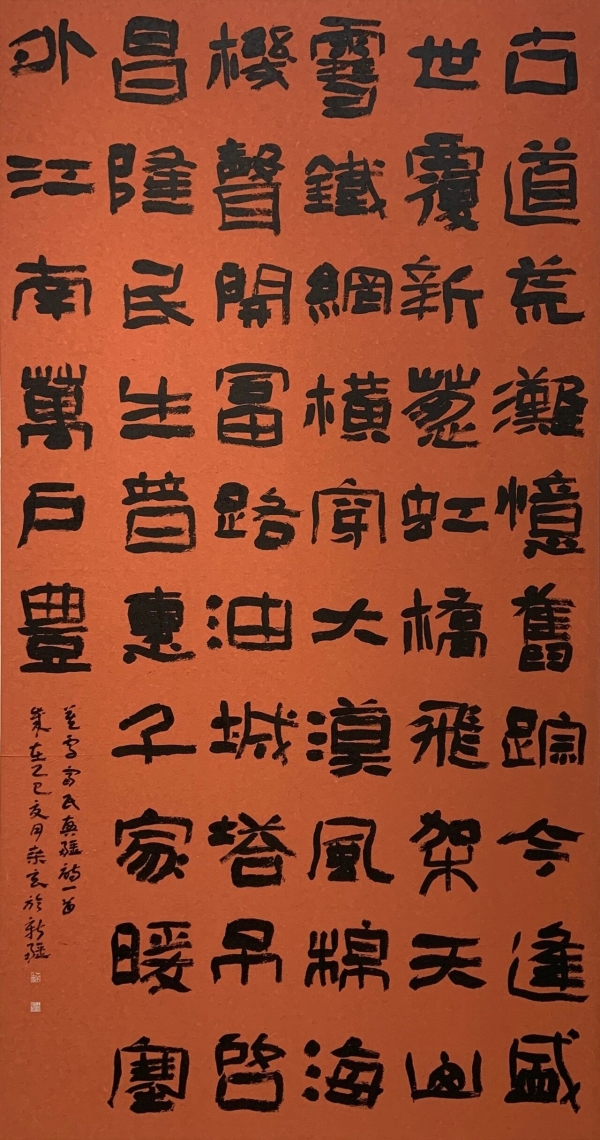 古道荒灘憶舊踪今逢盛
世覆新蔥虹橋飛架天山
雪鐵網橫穿大漠風棉海
機聲開冨路油城塔吊启
昌隆民生普惠千家暖塞
外江南萬戶豐
富民興疆詩一首
歲在乙巳夏月於新疆